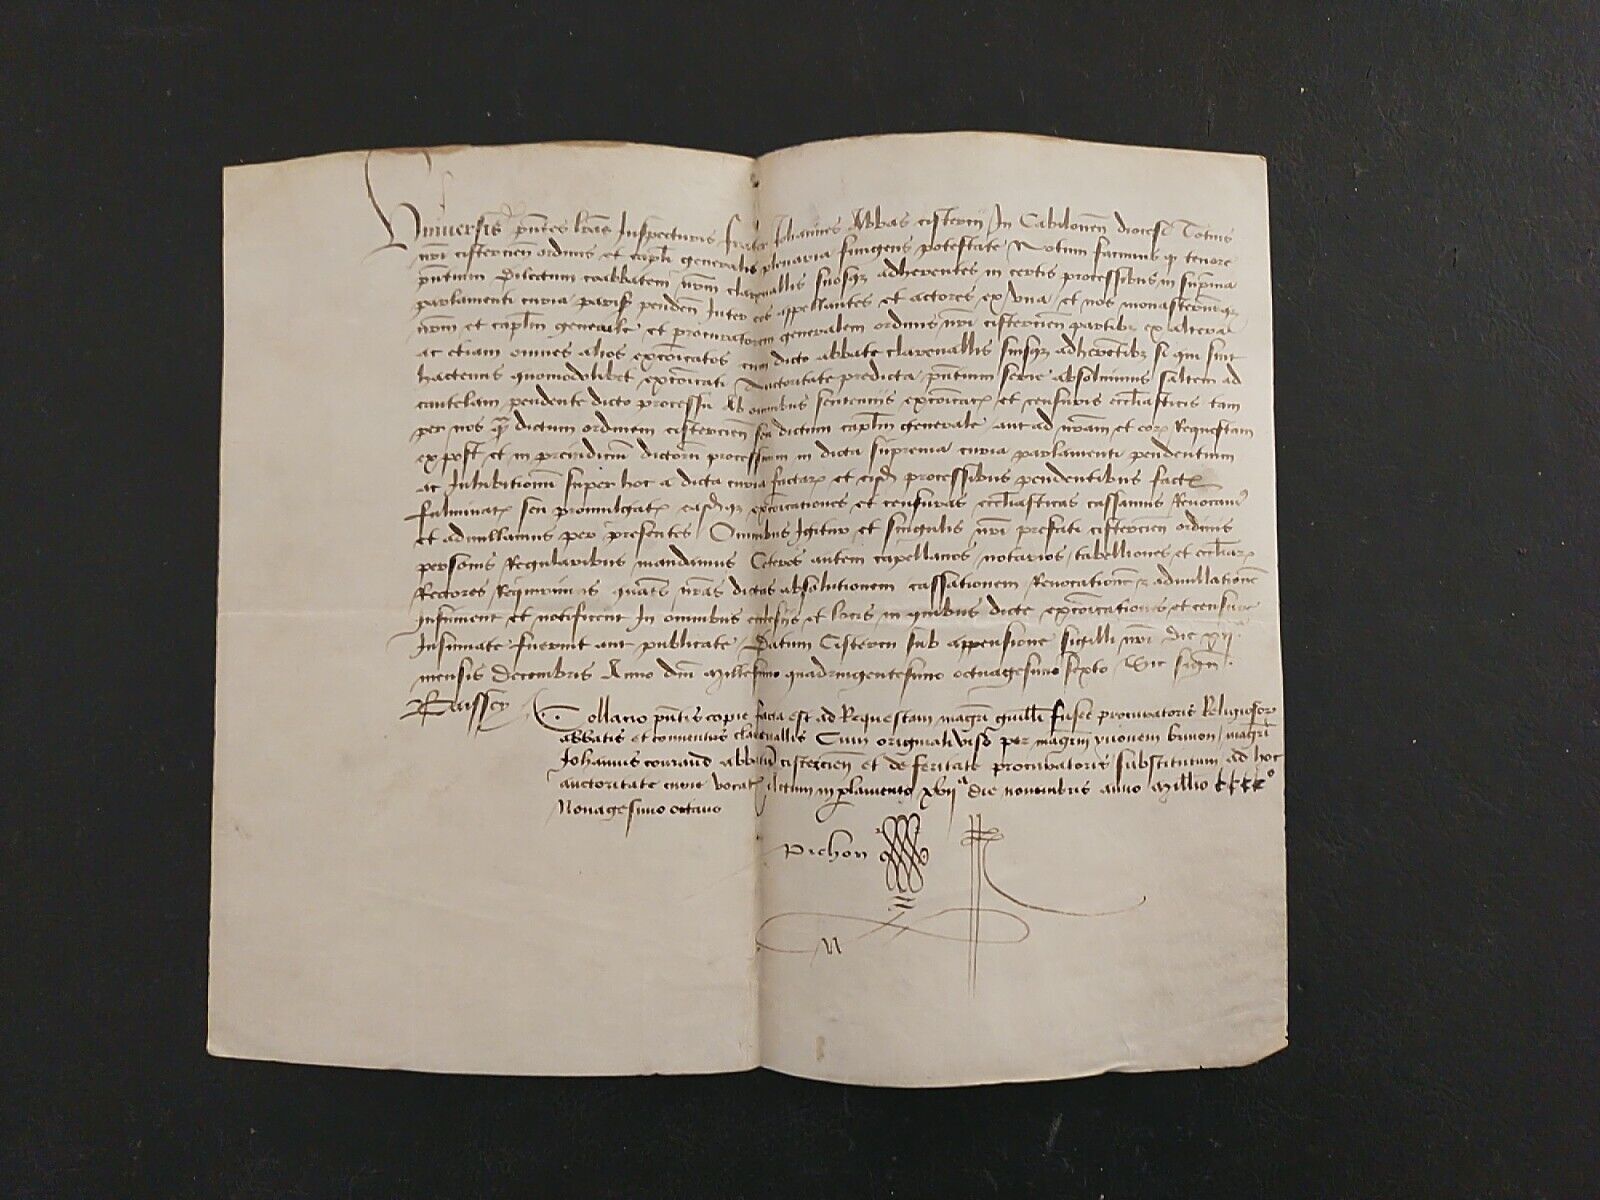 Universis pn̄tes lr̄as Inspecturis frater Iohannes Abbas cistercij In Cabilonen̄ diocesi Totius
nr̄i cistercien̄ ordinis et capl̄i generalis plenaria fungens potestate Notum facimus q̄ tenore
pn̄tium Dilectum coabbatem nr̄m clarevallis suosqȝ adherentes in certis processibus in suprema
parlamenti curia parisꝰ penden̄ Inter eos appellantes et actores ex una et nos monasteriūqȝ
nr̄m et capl̄m generale et procuratorem generalem ordinis nr̄i cistercien̄ partibȝ ex altera
ac etiam omnes alios excōicatos cum dicto abbate clarevallis suisqȝ adherētibȝ si qui sint
hactenus quomodolibet excōicati Auctoritate predicta pn̄tium serie absolvimus saltem ad
cautelam pendente dicto processu Ab omnibus sentenciis excōicatꝭ et censuris eccl̄iasticis tam
per nos q̄ dictum ordinem cistercien̄ seu dictum capl̄m generale aut ad nr̄am et eorꝭ Requestam
ex post et in preiudiciū dictorū processuum in dicta suprema curia parlamenti pendentium
ac Inhibitionū super hoc a dicta curia factarꝭ et eisdꝭ processibus pendentibus factꝭ
fulminatꝭ seu promulgatꝭ easdꝭqȝ excōicationes et censuras eccl̄iasticas cassamus Revocamꝰ
et adnullamus per presentes Omnibus Igitur et singulis nr̄i prefati cistercien̄ ordinis
personis Regularibus mandamus Ceteros autem capellanos notarios tabelliones et eccl̄iarꝭ
Rectores Requirimus quatꝰ nr̄as dictas absolutionem cassationem Revocationē ⁊ adnullationē
Insinuent et notificent In omnibus ecclesijs et locis in quibus dicte excōicationes et censure
Insinuate fuerint aut publicate Datum Cistercij sub appensione sigilli nr̄i die
mensis decembris Anno dn̄i Millesimo quadringentesimo octuagesimo sexto Sic sign̄
Collatio pn̄tis copie facta est ad Requestam magr̄i guill̄i fusee procuratoris Religiosorꝭ
abbatis et conventus clarevallis Cum originali visꝰ per magr̄m yvonem brinon magr̄i
Johannis couraud abbatū cistercien̄ et de feritate procuratoris substitutum ad hoc
auctoritate curie vocatꝭ Actum in parlamento xvij.ª die novembris anno Millīo CCCCº
Nonagesimo octavo
Pichon